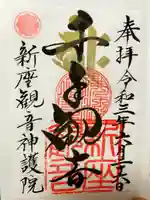 奉拝 令和三年六月二六日
千手観音
新座観音神護院